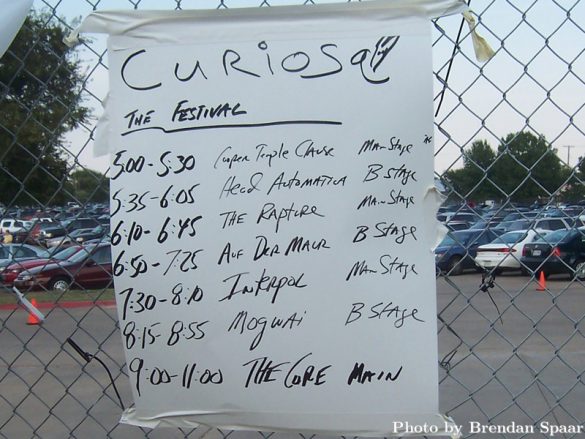 CURIOSA
THE FESTIVAL
5:00-5:30 Cooper Temple Clause Main Stage
5:35-6:05 Head Automatica B Stage
6:10-6:45 THE RAPTURE Main Stage
6:50-7:25 AUF DER MAUR B Stage
7:30-8:10 Interpol Main Stage
8:15-8:55 MOGWAI B Stage
9:00-11:00 THE CURE MAIN
Photo by Brendan Spaar